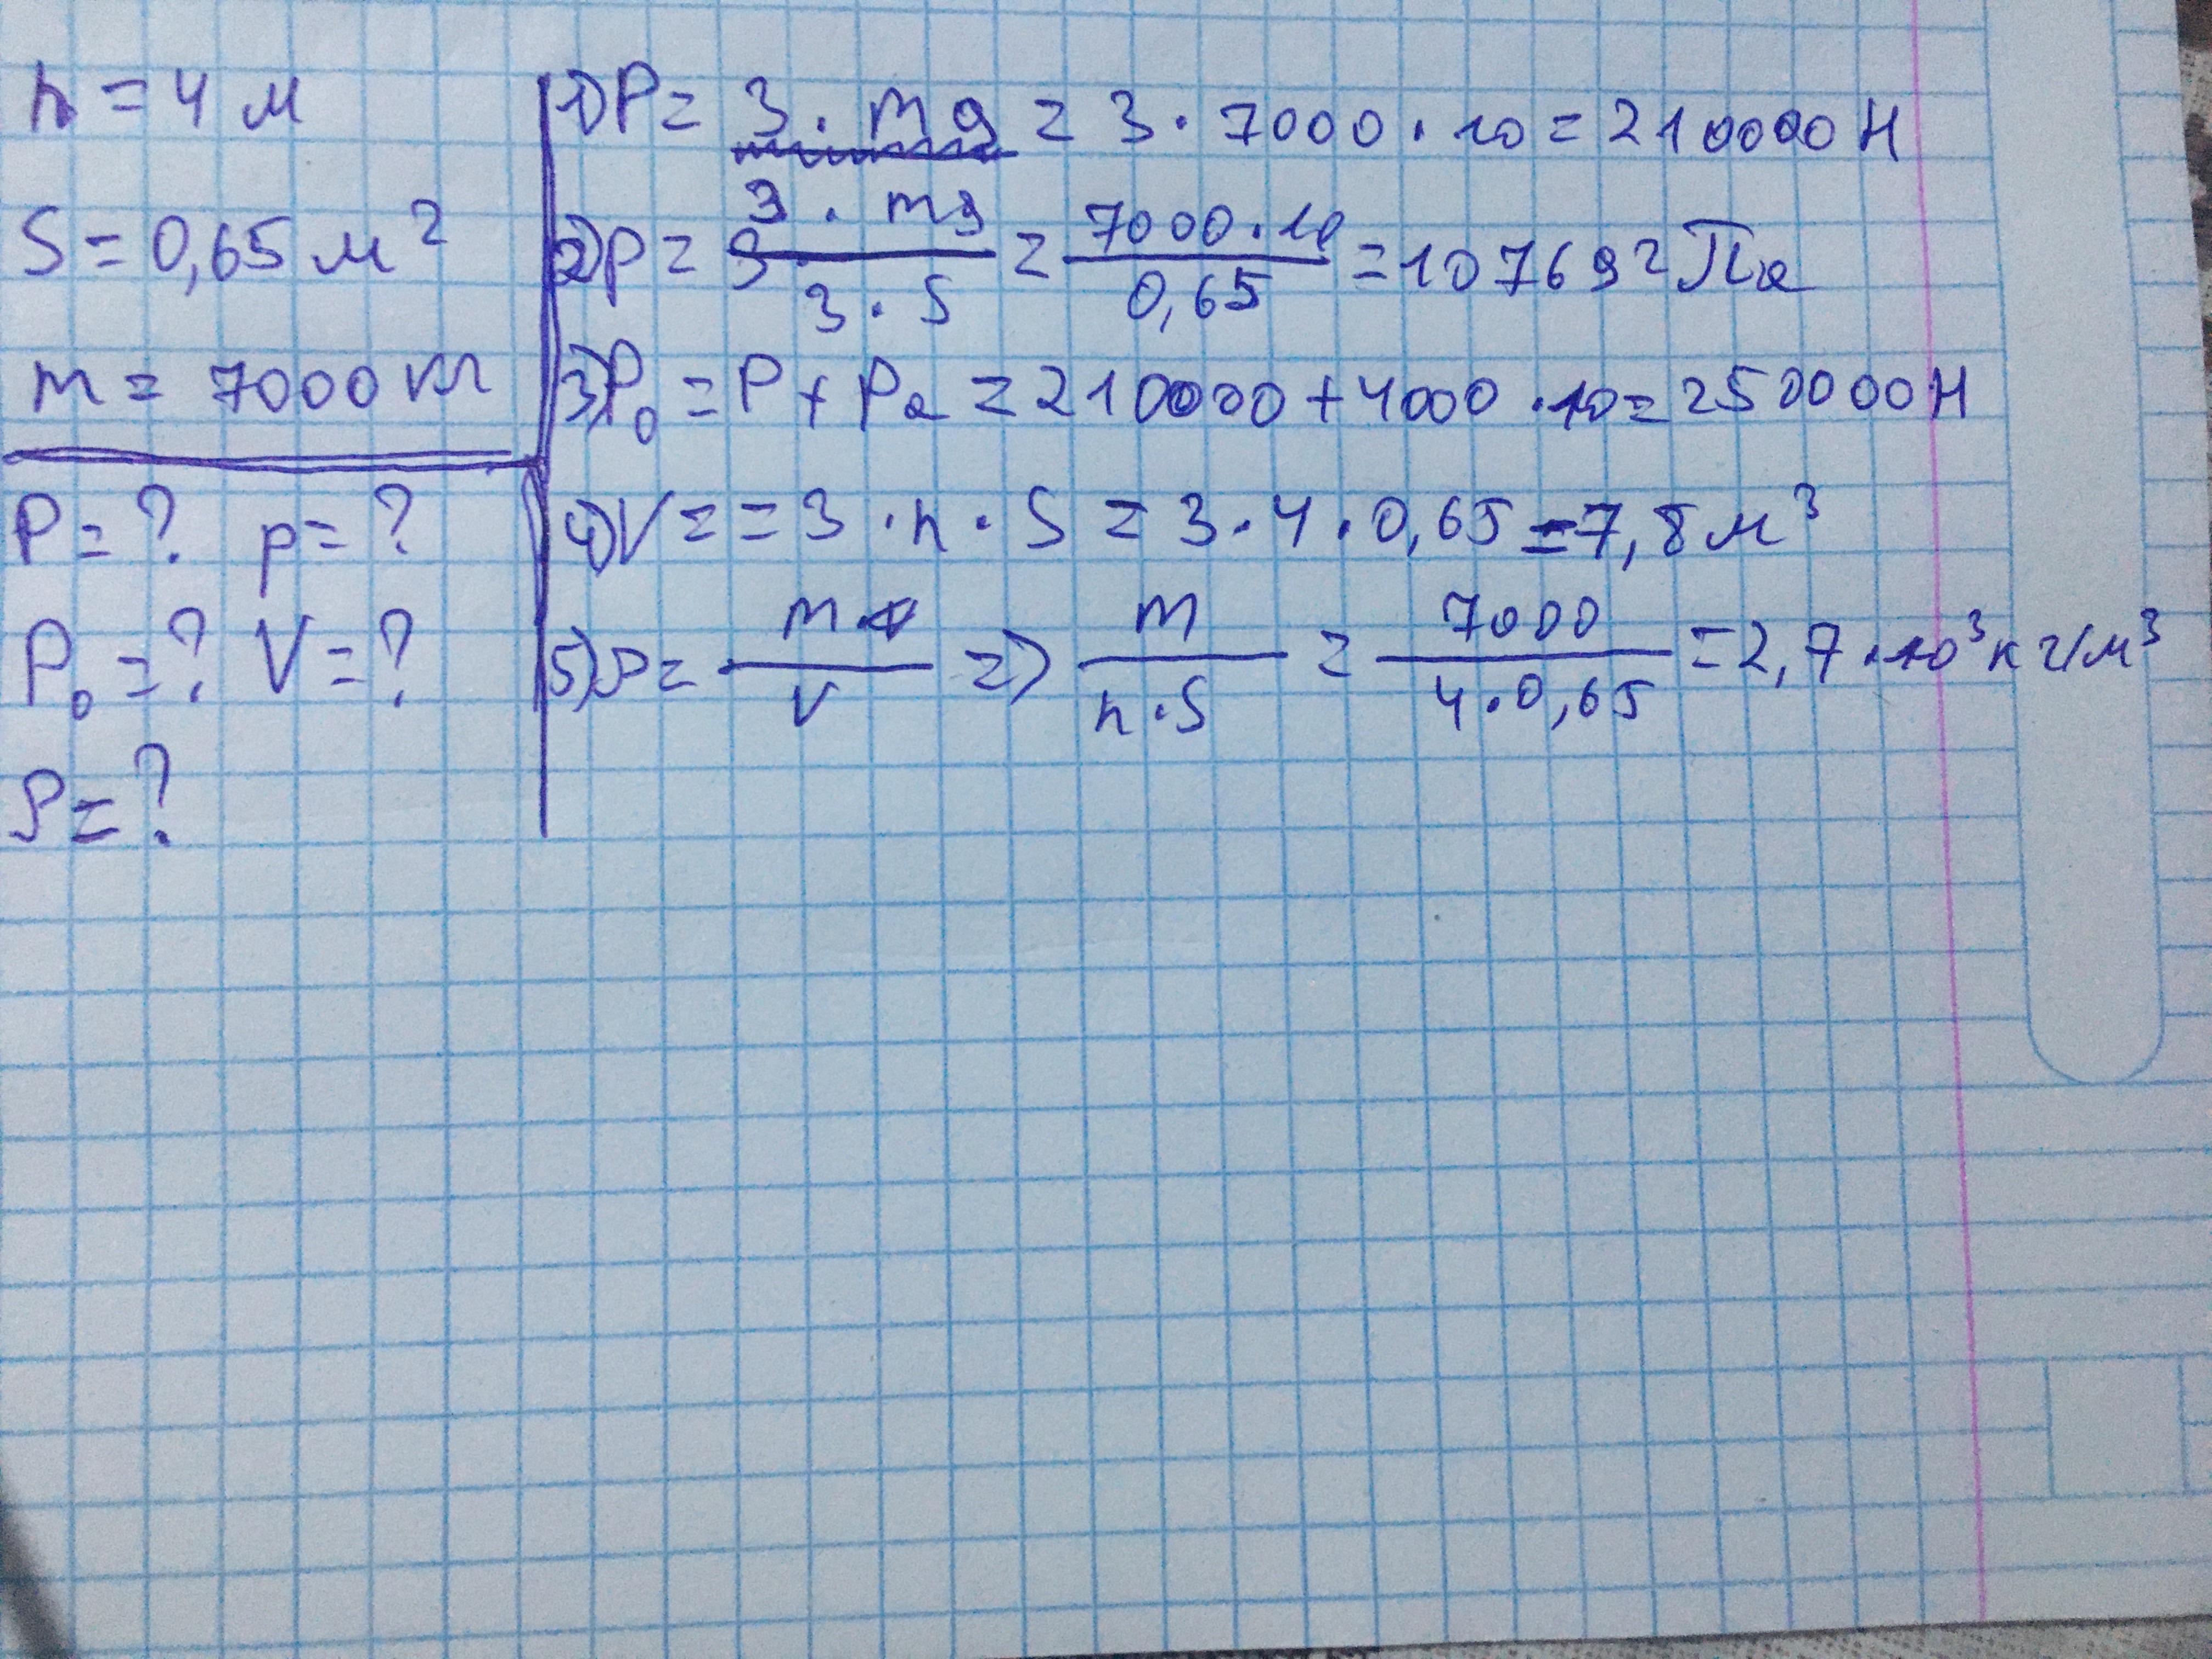 h = 4 м
S = 0,65 м²
m = 7000 кг
P = ? p = ?
P₀ = ? V = ?
ρ = ?
1) P = 3 · mg = 3 · 7000 · 10 = 210000 Н
2) p = 3 · mg / 3 · S = 7000 · 10 / 0,65 = 107692 Па
3) P₀ = P + Pa = 210000 + 4000 · 10 = 250000 Н
4) V = = 3 · h · S = 3 · 4 · 0,65 = 7,8 м³
5) ρ = m / V => m / h · S = 7000 / 4 · 0,65 = 2,7 · 10³ кг/м³